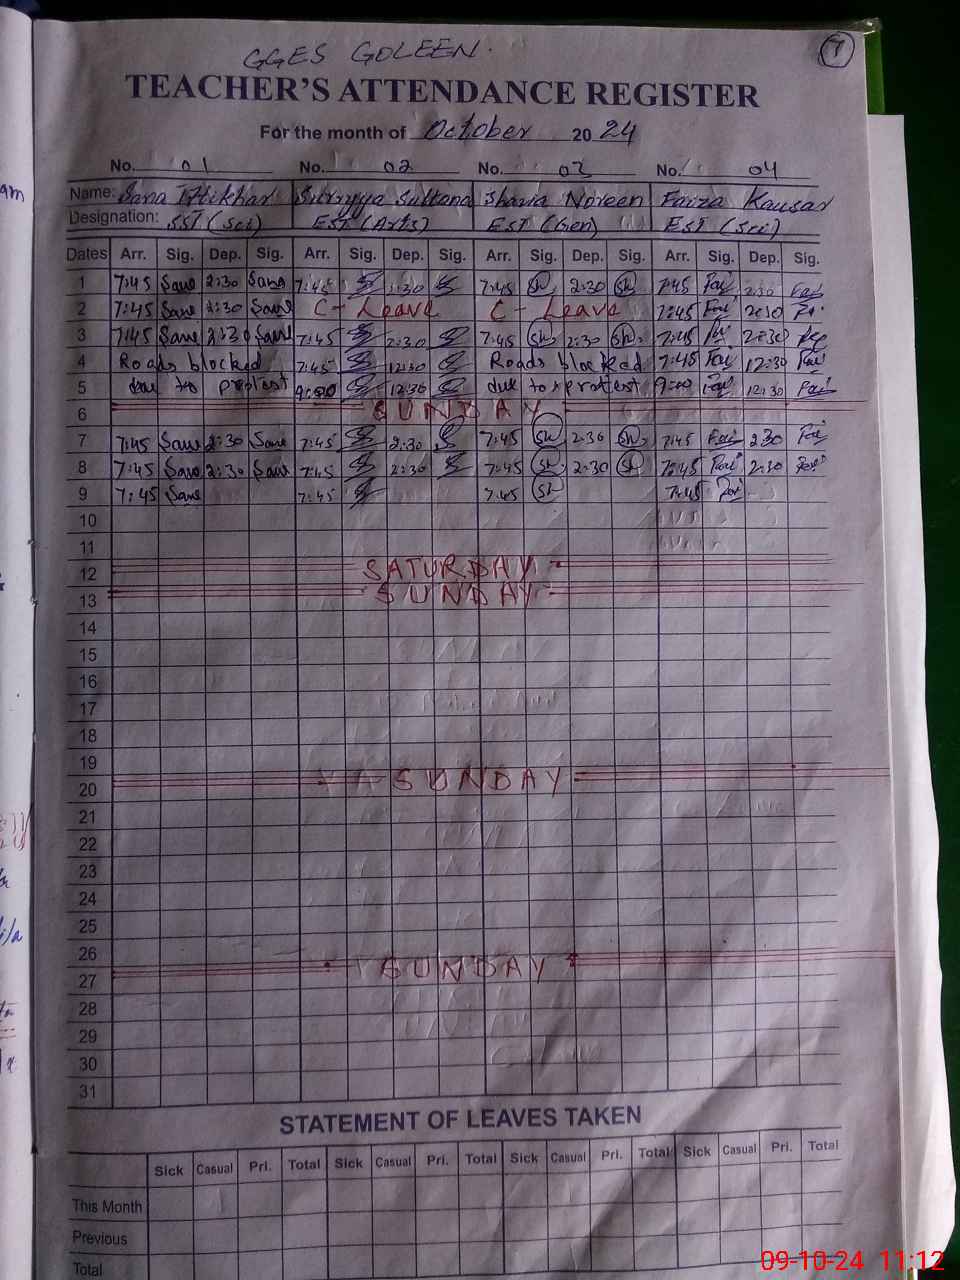 7
GGES GOLEEN.
TEACHER'S ATTENDANCE REGISTER
For the month of October 2024
No. 01 No. 02 No. 03 No. 04
Name: Sana Iftikhar Surryya Sultana Shazia Noreen Faiza Kausar
Designation: SST (Sci) EST (Arts) EST (Gen) EST (Sci)
Dates Arr. Sig. Dep. Sig. Arr. Sig. Dep. Sig. Arr. Sig. Dep. Sig. Arr. Sig. Dep. Sig.
1 7:45 Sana 2:30 Sana 7:45 1:30 7:45 Sh 2:30 Sh 7:45 Fai 2:30 Fai
2 7:45 Sana 2:30 Sana C - Leave C - Leave 7:45 Fai 2:30
3 7:45 Sana 2:30 Sana 7:45 2:30 7:45 Sh 2:30 Sh 7:45 2:30
4 Roads blocked 7:45 12:30 Roads blocked 7:45 Fai 12:30 Fai
5 due to protest 9:00 12:30 due to protest 9:00 Fai 12:30 Fai
6 SUNDAY
7 7:45 Sana 2:30 Sana 7:45 2:30 7:45 Sh 2:30 Sh 7:45 Fai 2:30 Fai
8 7:45 Sana 2:30 Sana 7:45 2:30 7:45 Sh 2:30 Sh 7:45 Fai 2:30 Fai
9 7:45 Sana 7:45 7:45 Sh 7:45 Fai
10
11
12 SATURDAY
13 SUNDAY
14
15
16
17
18
19
20 SUNDAY
21
22
23
24
25
26
27 SUNDAY
28
29
30
31
STATEMENT OF LEAVES TAKEN
Sick Casual Pri. Total Sick Casual Pri. Total Sick Casual Pri. Total Sick Casual Pri. Total
This Month
Previous
Total
09-10-24 11:12